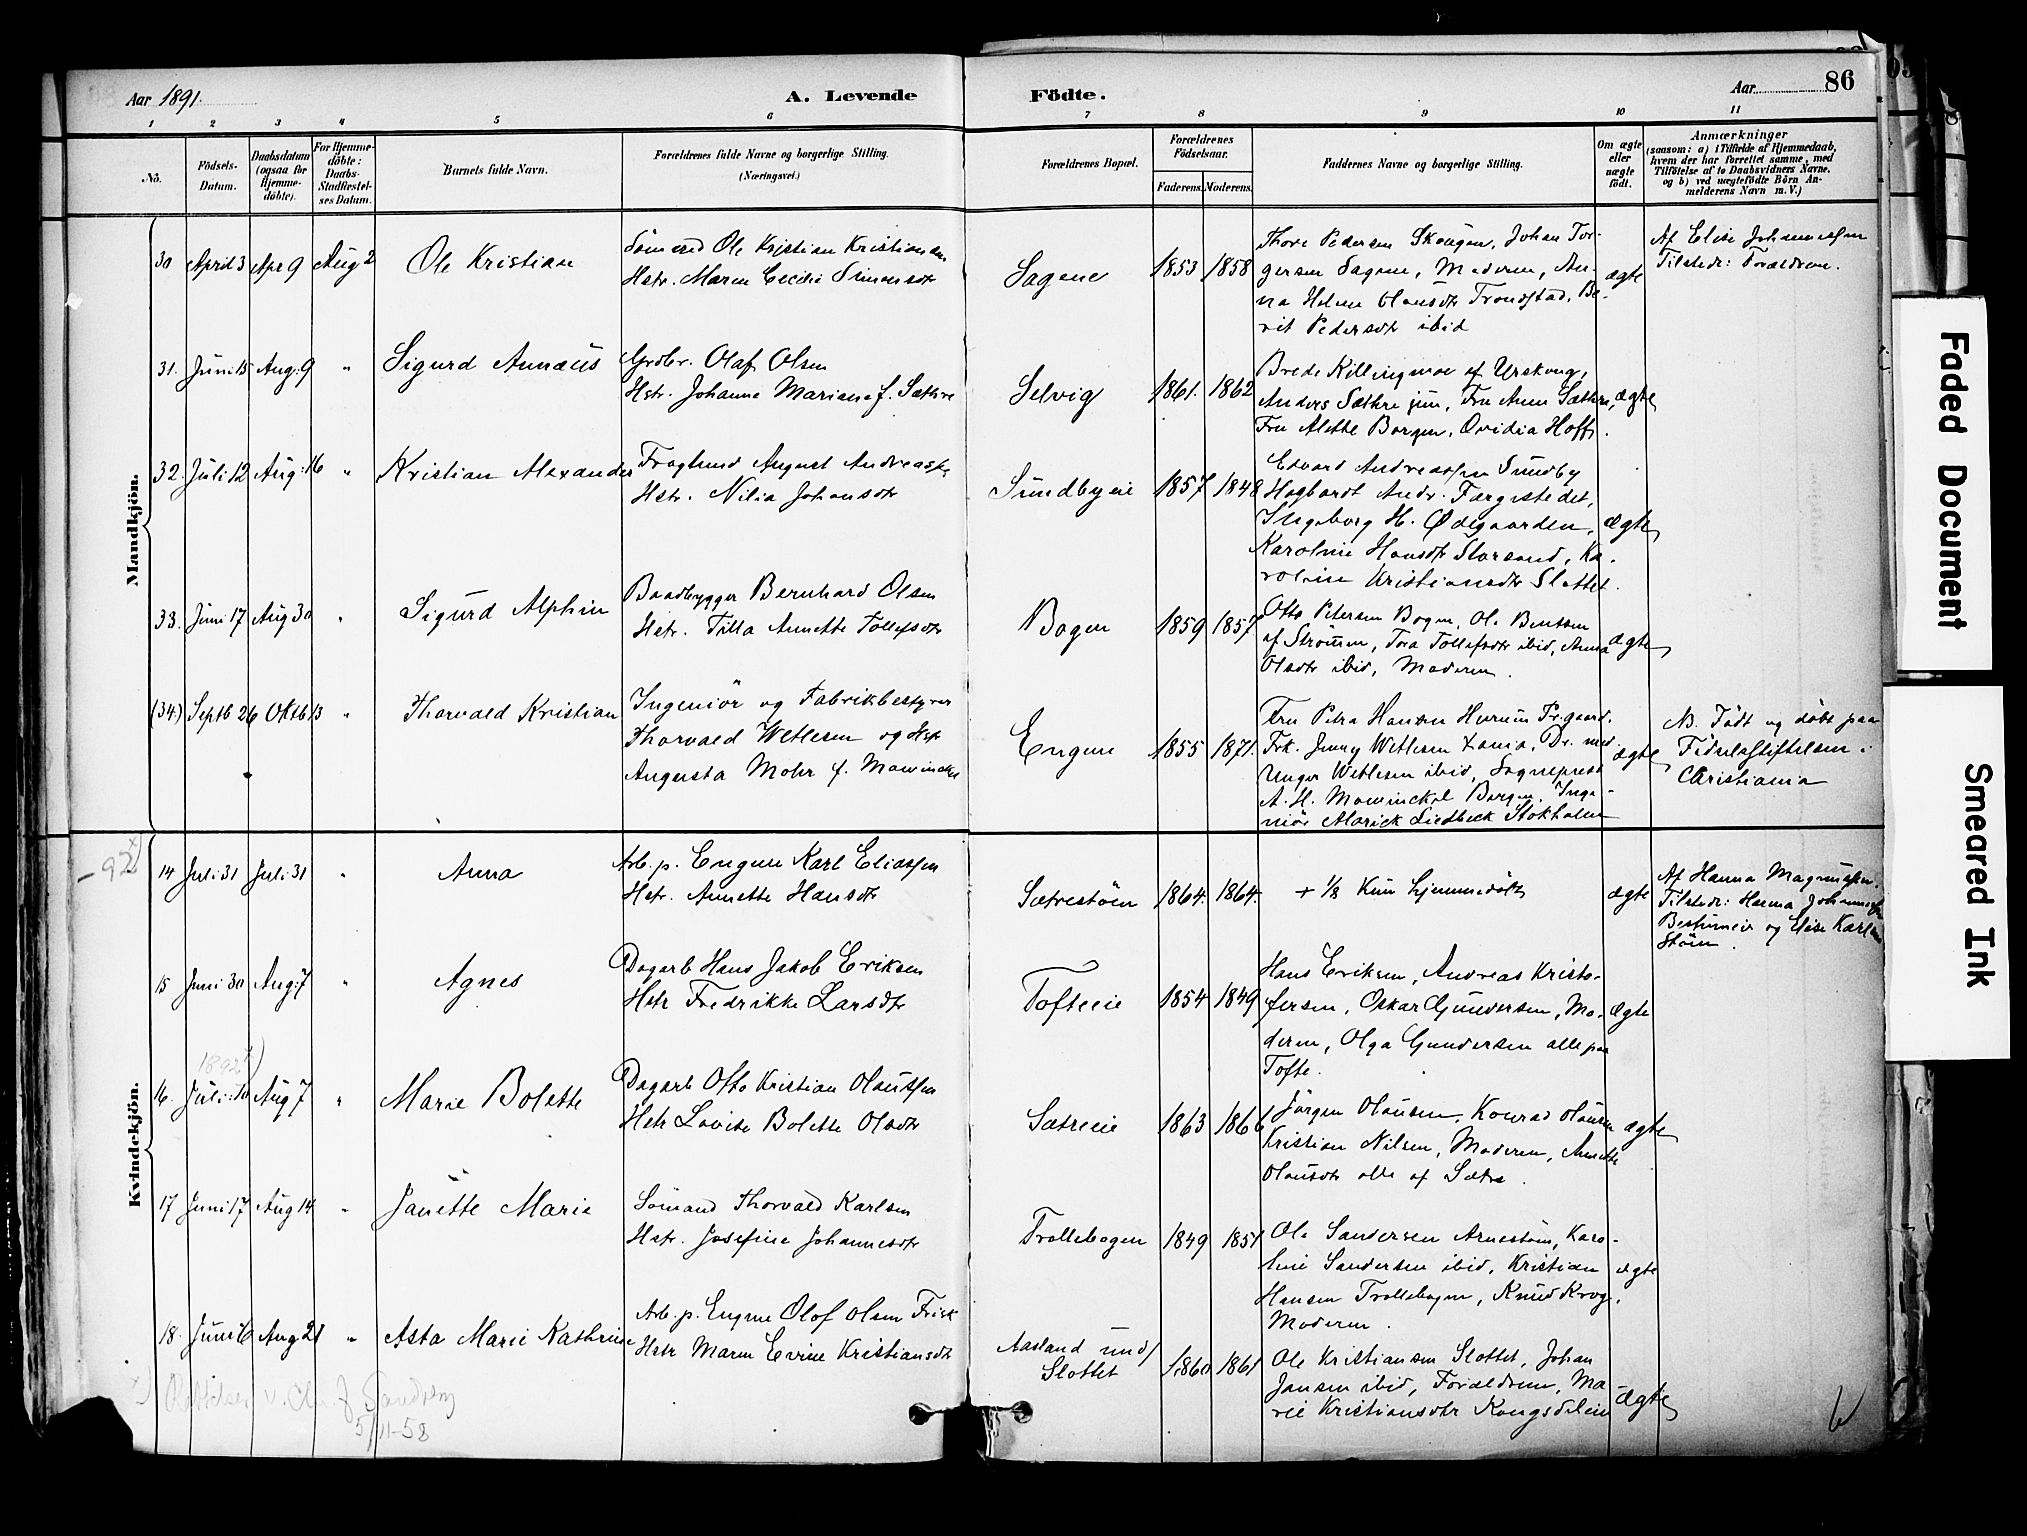 Aar 1891.
A. Levende
Födte.
Aar
86
1 2 3 4 5 6 7 8 9 10 11
No.
Födsels-
Datum.
Daabsdatum
(ogsaa for
Hjemme-
döbte).
For Hjemme-
döbte:
Daabs-
Stadfæstel-
ses Datum.
Barnets fulde Navn.
Forældrenes fulde Navne og borgerlige Stilling.
(Næringsvei.)
Forældrenes Bopæl.
Forældrenes
Födselsaar.
Faderens. Moderens.
Faddernes Navne og borgerlige Stilling.
Om ægte
eller
uægte
födt.
Anmærkninger
(saasom: a) i Tilfælde af Hjemmedaab,
hvem der har forrettet samme, med
Tilföielse af to Daabsvidners Navne,
og b) ved uægtefödte Börn An-
melderens Navn m. V.)
Mandkjön.
30 April 3 Apr 9 Aug 2 Ole Kristian
Sömand Ole Kristian Kristiansen
Hstr. Maren Cecilie Simensdtr
Sagene 1853 1858
Thore Pedersen Skougen, Johan Tor-
gersen Sagene, Moderen, An-
na Helene Olausdtr Trondstad, Be-
rit Pedersdtr ibid
ægte
Af Elise Johannessen
Tilstede: Forældrene.
31. Juni 15 Aug: 9 " Sigurd Annæus
Grdbr. Olaf Olsen
Hstr. Johanne Mariane f. Sæthre
Selvig 1861. 1862
Brede Killingmoe af Urskoug,
Anders Sæthre jun, Fru Anna Sæthre,
Fru Alette Borgen, Ovidia Hoff.
ægte
32. Juli 12 Aug: 16 " Kristian Alexander
August Andreassen
Hstr. Nilia Johansdtr
Sundbyeie 1857 1848
Edvard Andreassen Sundby
Hagbardt Andr. Færgestedet,
Ingeborg H. Ødegaarden,
Karoline Hansdtr Storsand, Ka-
roline Kristiansdtr Slottet.
ægte
33. Juni 17 Aug 30 " Sigurd Alphin
Baadbygger Bernhard Olsen
Hstr. Tilla Annette Tollefsdtr
Bogen 1859 1857
Otto Petersen Bogen, Ole Bentsen
af Strömmen, Tora Tollefsdtr ibid, Anna
Olsdtr ibid, Moderen.
ægte
(34.) Septb 26 Oktb 13 " Thorvald Kristian
Ingeniör og Fabrikbestyrer
Thorvald Wetlesen og Hstr
Augusta Mohr f. Mowinckel
Engene 1855 1871.
Fru Petra Hansen Hurum Pr.gaard,
Frk. Jenny Wetlesen Xania, Dr. med
Unger Wetlesen ibid, Sogneprest
A. H. Mowinckel Bergen, Inge-
niör Alarick Liedbeck Stokholm
ægte
NB. Födt og döbt paa
Födselsstiftelsen i
Christiania
Kvindekjön.
-92
14 Juli 31 Juli 31 " Anna
Arb. p. Engene Karl Eliassen
Hstr. Annette Hansdtr
Sætrestöen 1864. 1864.
+ 1/8 Kun hjemmedöbt
ægte
Af Hanna Magnussen.
Tilstede: Hanna Johannessen
og Elise Karlsen
Stöen.
15 Juni 30 Aug: 7 " Agnes
Dagarb Hans Jakob Eriksen
Hstr Fredrikke Larsdtr
Tofteeie 1854 1849
Hans Eriksen, Andreas Kristo-
fersen, Oskar Gundersen, Mo-
deren, Olga Gundersen alle paa
Tofte.
ægte
1892
16. Juli 10 Aug 7 " Marie Bolette
Dagarb Otto Kristian Olaussen
Hstr Lovise Bolette Olsdtr
Sætreeie 1863 1866
Jörgen Olausen, Konrad Olausen
Kristian Nilsen, Moderen, Annette
Olausdtr alle af Sætre.
ægte
17 Juni 17 Aug 14 " Janette Marie
Sömand Thorvald Karlsen
Hstr. Josefine Johannesdtr
Trollebogen 1849 1851
Ole Sandersen Arnestöen, Karo-
line Sandersen ibid, Kristian
Hansen Trollebogen, Knud Krog,
Moderen.
ægte
18. Juni 6 Aug 21 " Asta Marie Kathrine
Arb. p. Engene Olof Olsen Frisk
Hstr Maren Evine Kristiansdtr
Aasland und/
Slottet 1860 1861
Ole Kristiansen Slottet, Johan
Jansen ibid, Forældrene, Ma-
rie Kristiansdtr Kongsdelene
ægte
Sandberg
5/11-58
Faded Document
Smeared Ink